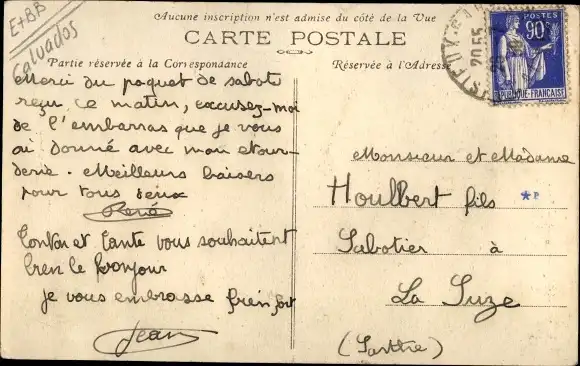 E+BB
Calvados
Aucune inscription n'est admise du côté de la Vue
CARTE POSTALE
Partie réservée à la Correspondance
Réservée à l'Adresse
POSTES
90c
RÉPUBLIQUE-FRANÇAISE
2055
Merci du paquet de sabots
reçu ce matin, excusez-moi
de l'embarras que je vous
ai donné avec mon étour-
derie. Meilleurs baisers
pour tous deux
René
Tonton et Tante vous souhaitent
bien le bonjour
je vous embrasse bien fort
Jean
Monsieur et Madame
Houlbert fils
Sabotier à
La Suze
(Sarthe)